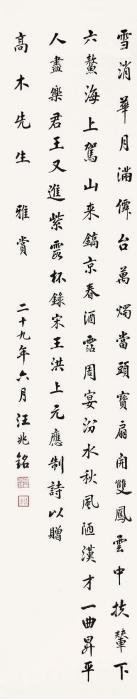 雪消華月滿僊台萬燭當頭寶扇開雙鳳雲中扶輦下
六鰲海上駕山來鎬京春酒霑周宴汾水秋風陋漢才一曲昇平
人盡樂君王又進紫霞杯錄宋王洪上元應制詩以贈
高木先生 雅賞
二十九年六月汪兆銘